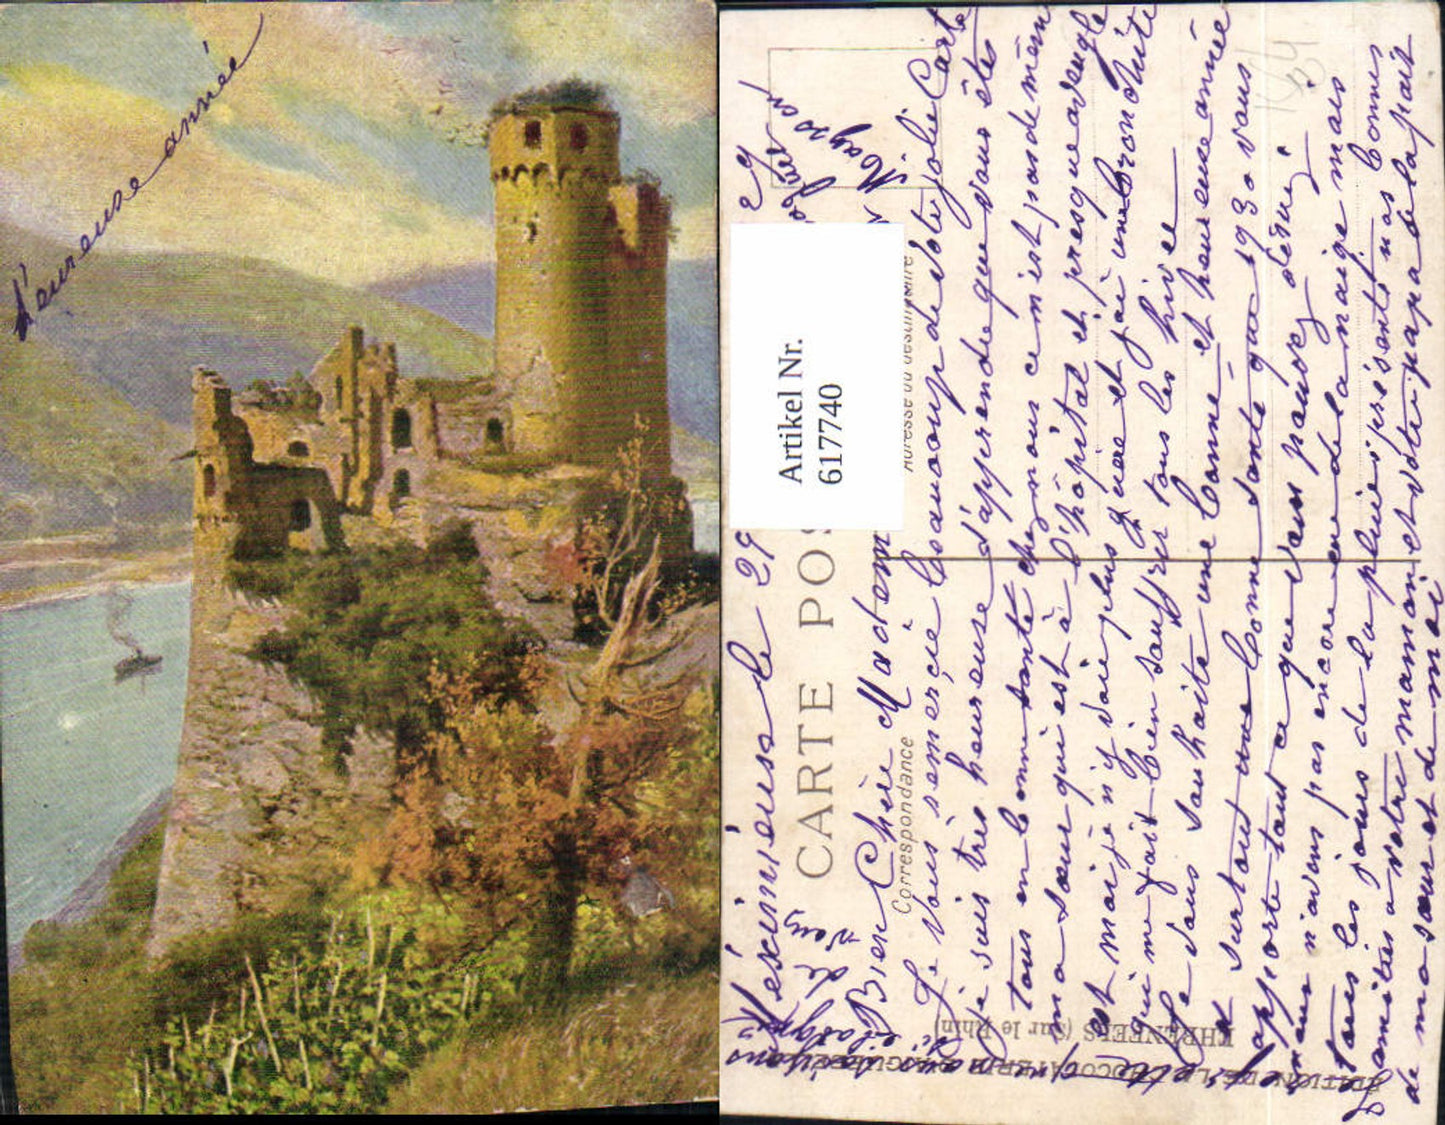 heureuse année
Artikel Nr.
617740
CARTE POS
Correspondance
Adresse du destinataire
EHRENFELS (Sur le Rhin)
Meximieux le 29
Bien Chère Madem
Je vous remercie beaucoup de votre jolie Carte
je suis très heureuse d'apprendre que vous êtes
tous en bonne santé chez nous ce n'est pas de même
ma sœur qui est à l'hôpital est presque aveugle
et moi je n'y vois plus guère et j'ai une bronchite
qui me fait bien souffrir tous les hivers
Je vous souhaite une bonne et heureuse année
et surtout une bonne santé que 1930 vous
apporte tout ce que vous pouvez désirer
nous n'avons pas encore eu de la neige mais
tous les jours de la pluie présenté nos bonnes
amitiés à votre maman et votre papa de la part
de ma sœur et de moi